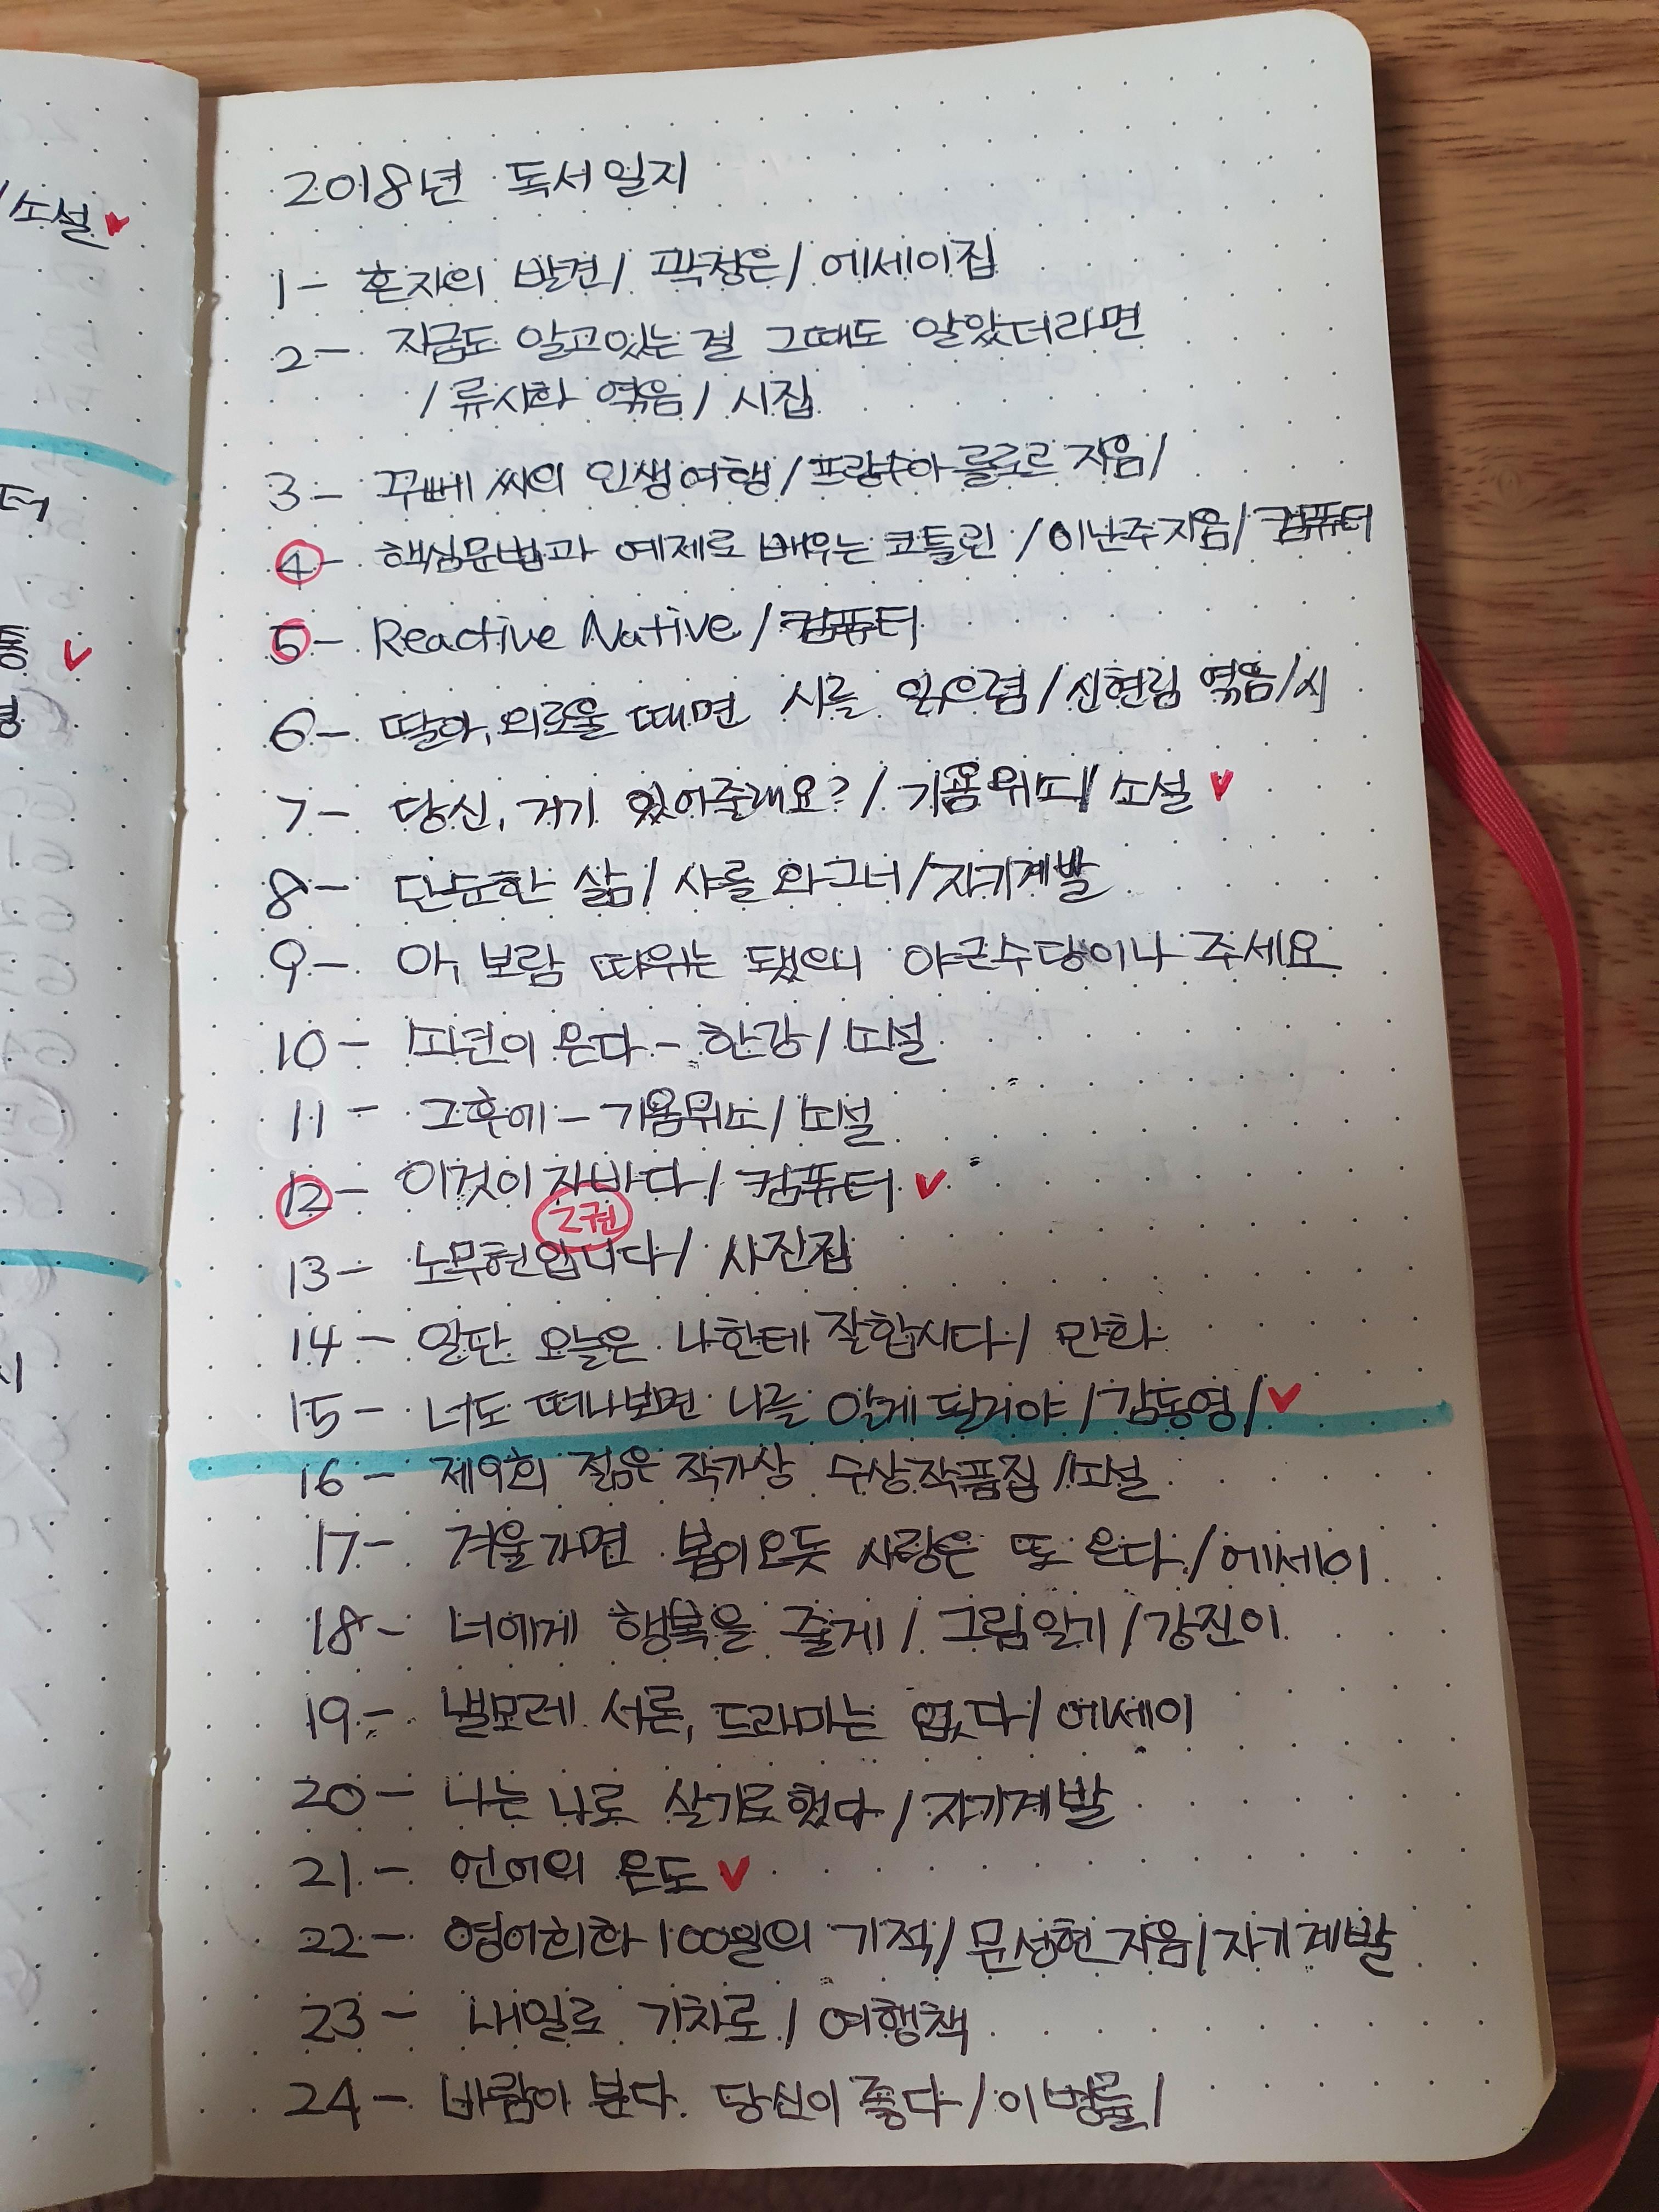 /소설
터
통
령
시
2018년 독서일지
1- 혼자의 발견/ 곽정은/ 에세이집
2- 지금도 알고있는걸 그때도 알았더라면
/류시화 엮음/ 시집
3- 꾸뻬 씨의 인생여행/프랑수아 를로르 지음/
4- 핵심문법과 예제로 배우는 코틀린 /이난주지음/ 컴퓨터
5- Reactive Native/컴퓨터
6- 딸아, 외로울 때면 시를 읽으렴/신현림 엮음/시
7- 당신, 거기 있어줄래요?/ 기욤뮈소/ 소설
8- 단순한 삶/ 샤를 와그너/자기계발
9- 아, 보람 따위는 됐으니 야근수당이나 주세요
10- 소년이 온다- 한강/ 소설
11- 그후에- 기욤뮈소/ 소설
12- 이것이 자바다/ 컴퓨터
2권
13- 노무현입니다/ 사진집
14- 일단 오늘은 나한테 잘합시다/ 만화
15- 너도 떠나보면 나를 알게 될거야/김동영/
16- 제9회 젊은 작가상 수상작품집/소설
17- 겨울가면 봄이오듯 사랑은 또 온다/에세이
18- 너에게 행복을 줄게/ 그림일기/강진이
19- 낼모레 서른, 드라마는 없다/ 에세이
20- 나는 나로 살기로했다/자기계발
21- 언어의 온도
22- 영어회화 100일의 기적/ 문성현 지음/자기계발
23- 내일로 기차로/ 여행책
24- 바람이 분다. 당신이 좋다/이병률/